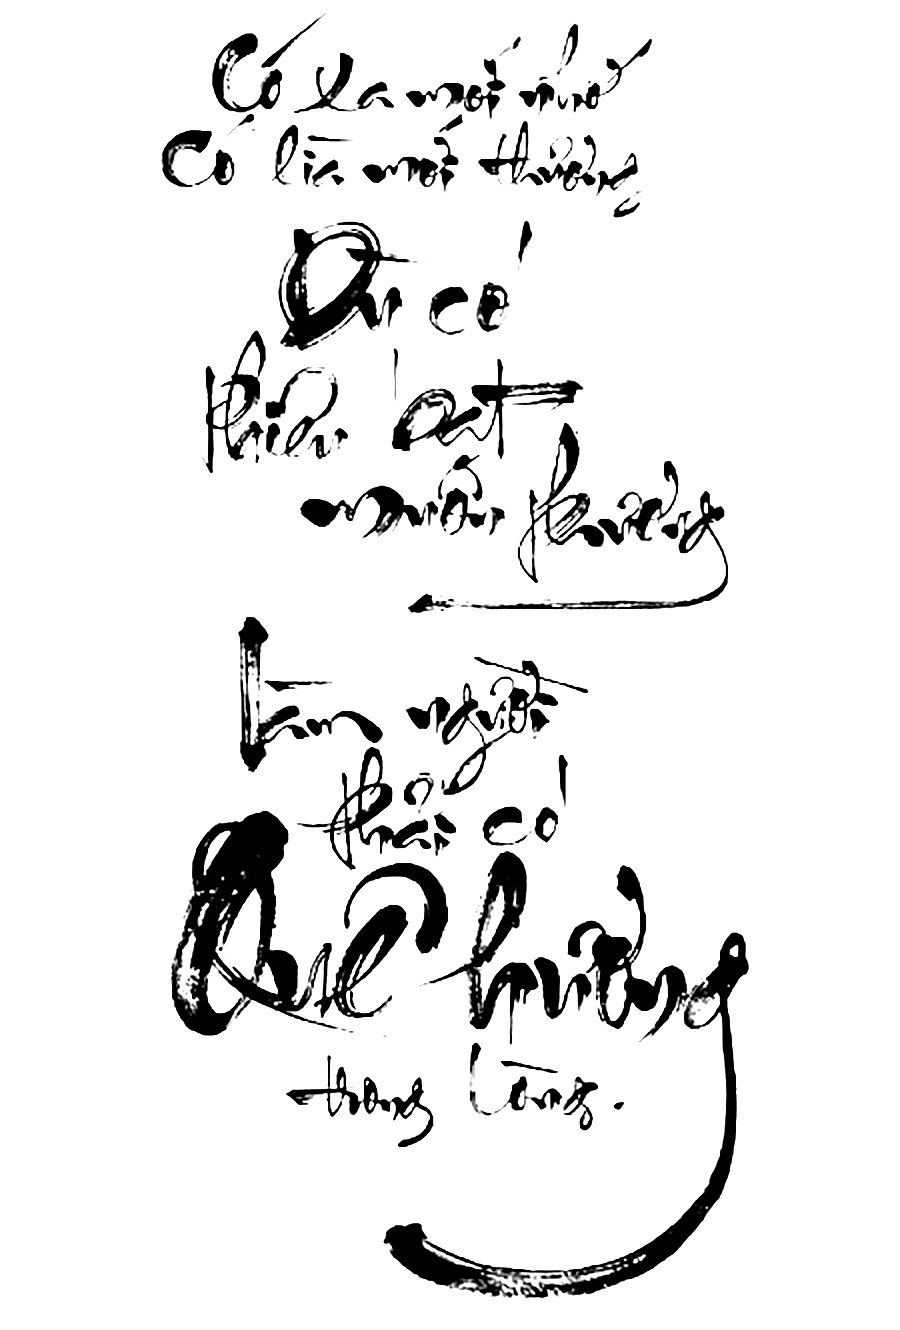 Có xa mới nhớ
Có lìa mới thương
Dù có
phiêu bạt
muôn phương
Làm người
phải có
Quê hương
trong lòng.